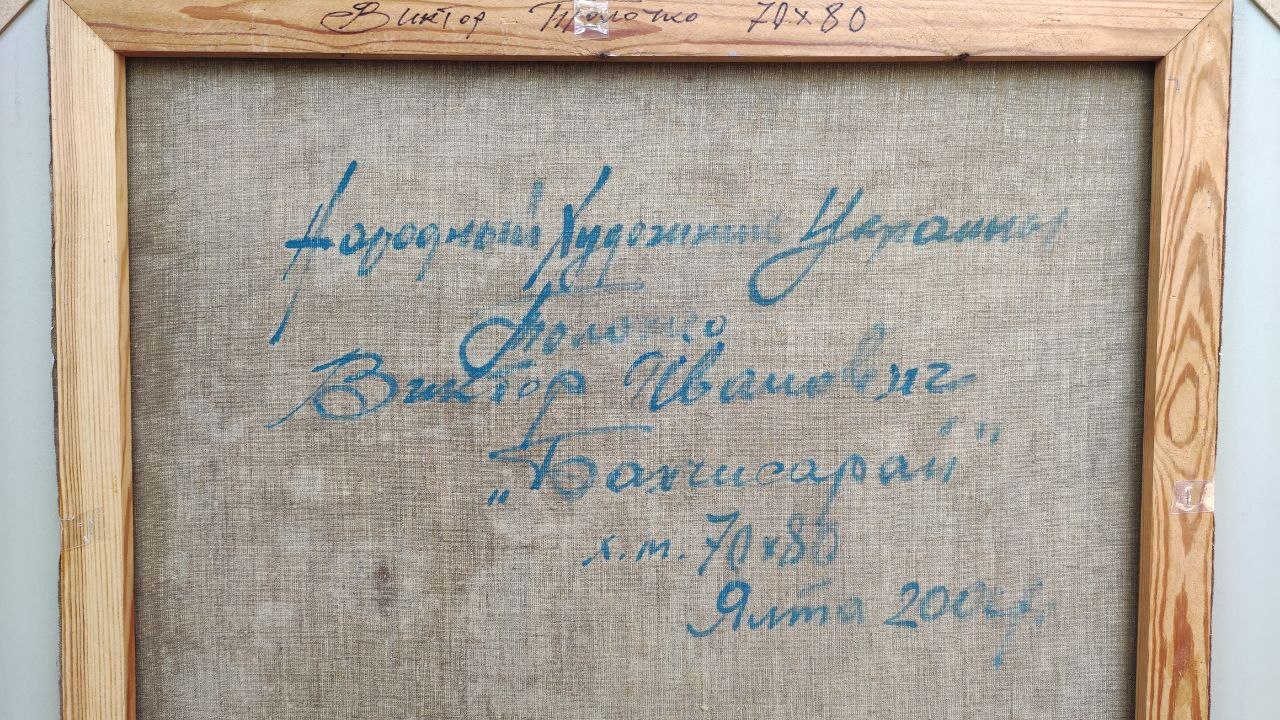 Виктор Толочко 70х80
Народный Художник Украины
Толочко
Виктор Иванович
„Бахчисарай"
х.м. 70х80
Ялта